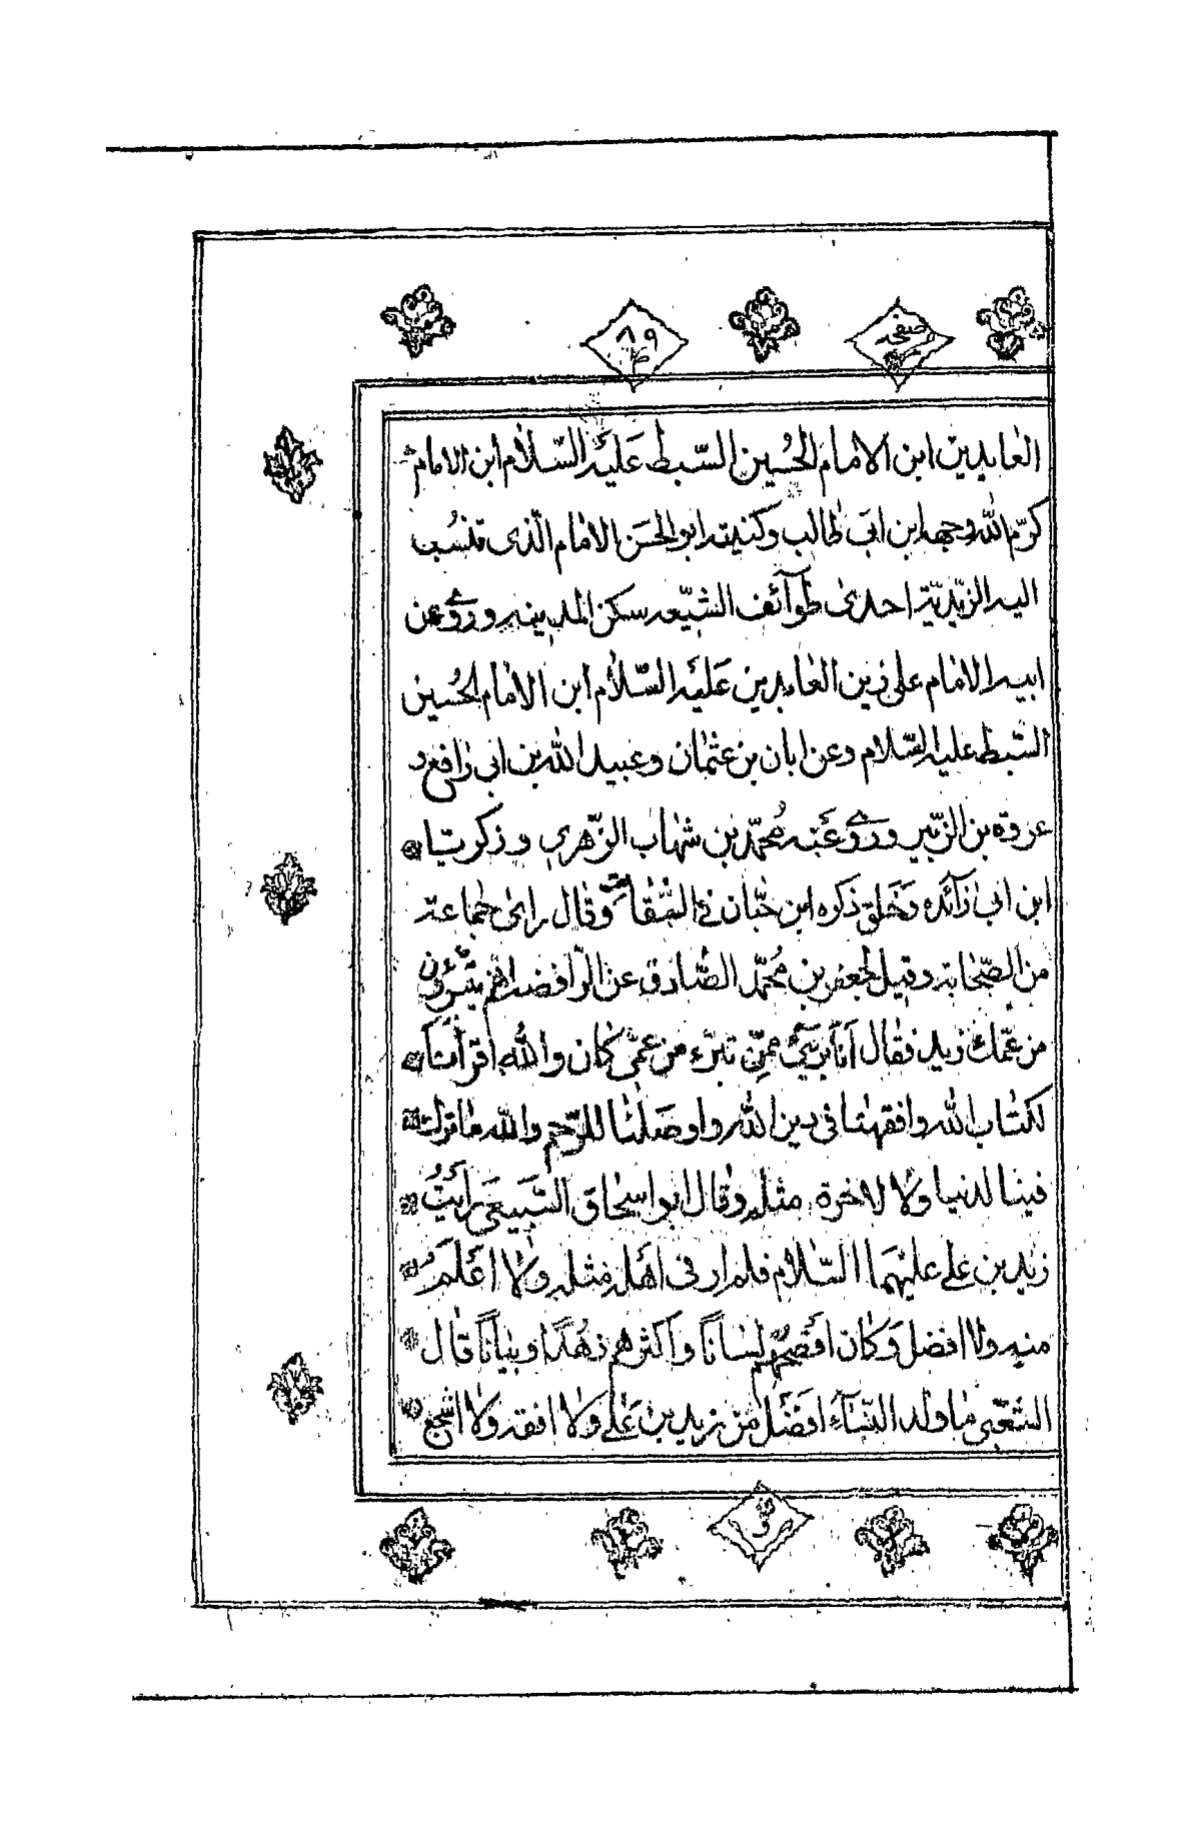 صفحه
٨٩
العابدين ابن الامام الحُسين السّبط عَليَه السّلام ابن الامام
كرّم الله وجهه ابن ابى طالب وكنيته ابو الحسَن الامام الّذى تنسُب
اليه الزّيديّة احدى طوآئف الشيّعه سكن المدينه وروٰى عن
ابيه الامام على زين العابدين عَليَه السّلام ابن الامام الحُسين
السّبط عليه السّلام وعن ابان بن عثمان وعبيد الله بن ابى رافع و
عروة بن الزّبير وروٰى عَنه مُحمّد بن شهاب الزّهرى و زكريّا
ابن ابى زآئده وَخَلق ذكره ابن حّبان فى الثّقات وقال راى جماعة
من الصّحابة وقيل لجعفر بن مُحمّد الصّادق عن الرّافضه انّهم يتبرّؤن
من عمّك زيد فقال اَنا برَىٓءٌ ممّن تبرّء من عمّى كان والله اقرأنا
لكتاب الله وافقهنا فى دين الله واوصَلنا للرّحم والله ما ترك
فينا لدنيا ولا لاخرة مثله وقال ابو اسحاق السَّبيعى رايَتُ
زيد بن على عليهما السّلام فلم ار فى اهَله مثله ولا اعَلَمُ
منه ولا افضل وَكان افَصَحَهُم لِسَاناً واكثرهم زهُداً وبياناً قال
الشعّبى ما ولد النّسآء افضَل من زيد بن على ولا افقه ولا اشجع